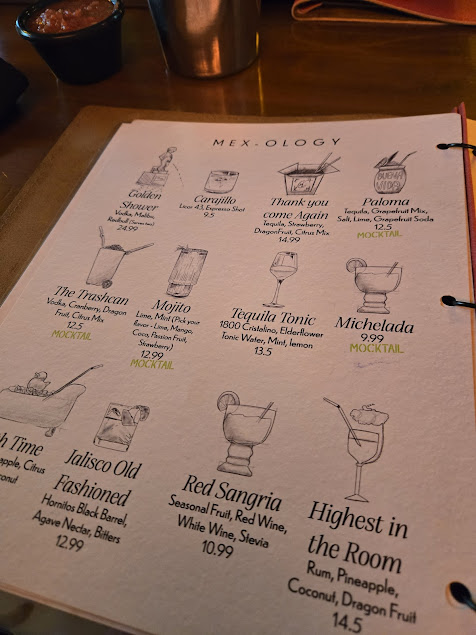 MEX-OLOGY
Golden
Shower
Vodka, Malibu,
24.99
Carajillo
Licor 43, Espresso Shot
9.5
Thank you
come Again
Tequila, Strawberry,
DragonFruit, Citrus Mix
14.99
BUENA
VIDA
Paloma
Tequila, Grapefruit Mix,
Salt, Lime, Grapefruit Soda
12.5
MOCKTAIL
The Trashcan
Vodka, Cranberry, Dragon
Fruit, Citrus Mix
12.5
MOCKTAIL
Mojito
Lime, Mint (Pick your
flavor - Lime, Mango,
Coco, Passion Fruit,
Strawberry)
12.99
MOCKTAIL
Tequila Tonic
1800 Cristalino, Elderflower
Tonic Water, Mint, lemon
13.5
Michelada
9.99
MOCKTAIL
h Time
apple, Citrus
conut
Jalisco Old
Fashioned
Hornitos Black Barrel,
Agave Nectar, Bitters
12.99
Red Sangria
Seasonal Fruit, Red Wine,
White Wine, Stevia
10.99
Highest in
the Room
Rum, Pineapple,
Coconut, Dragon Fruit
14.5